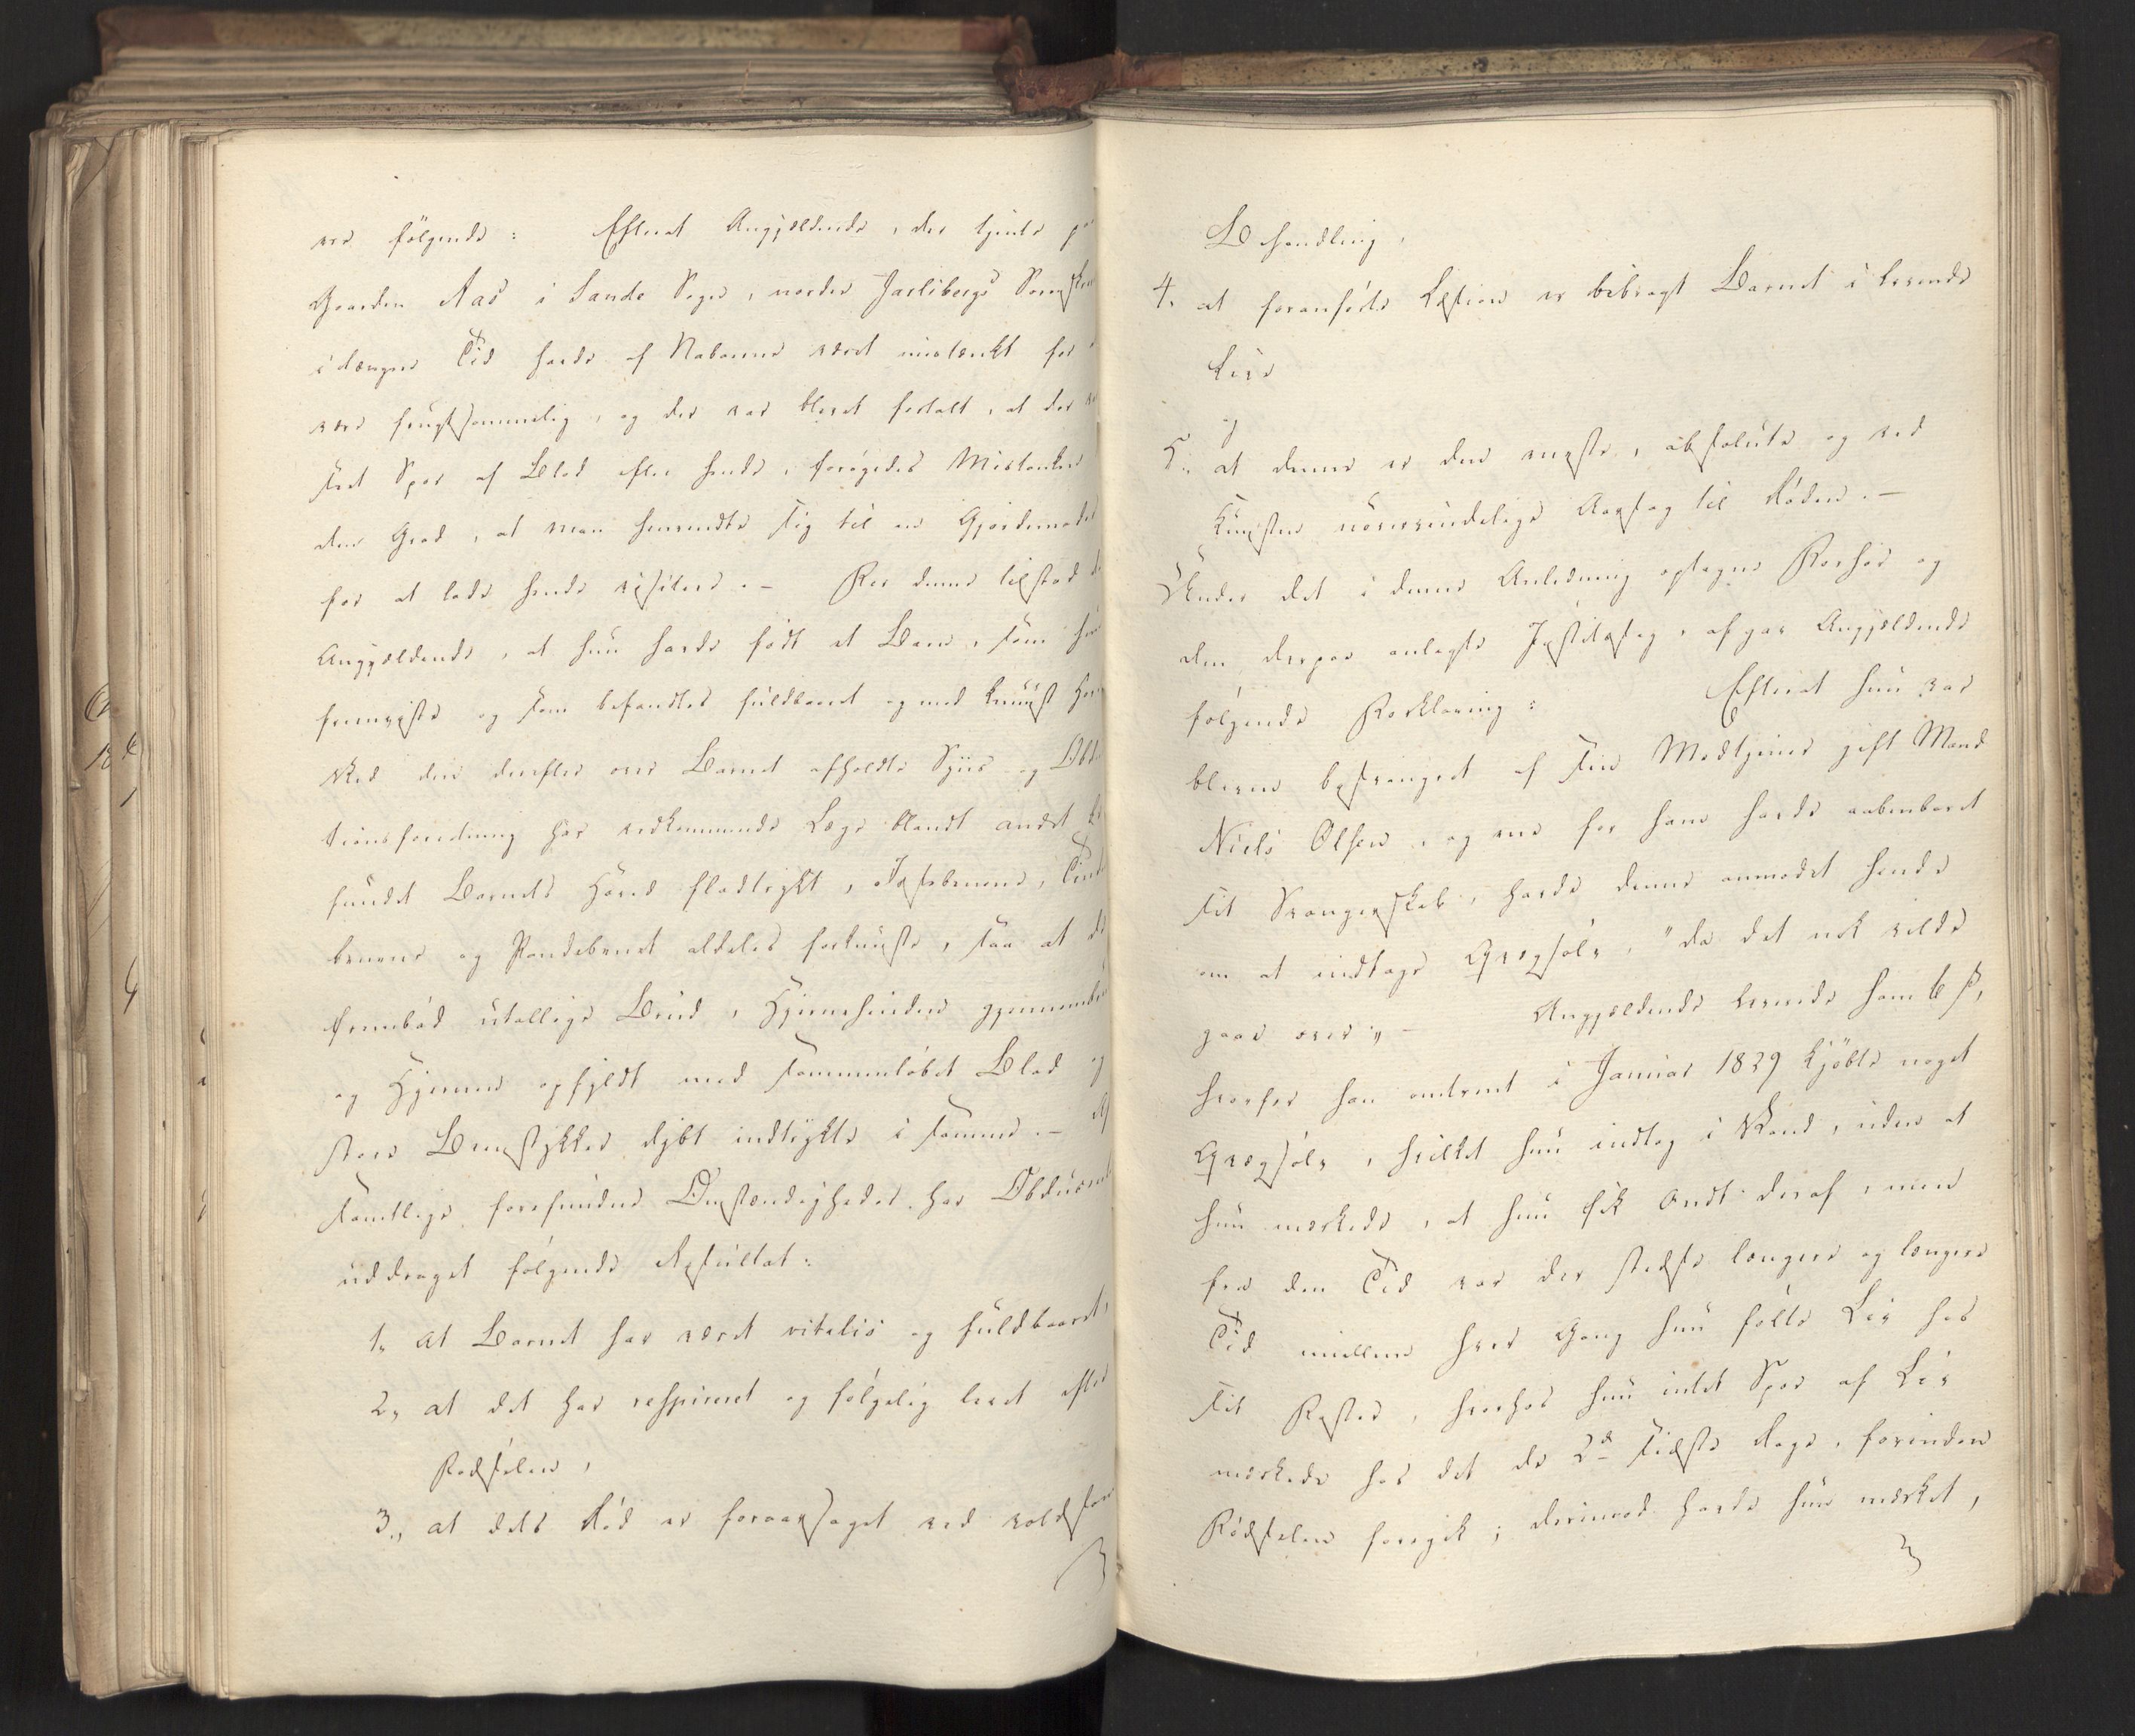 ere følgende: Efterat Angjældende, der tjente paa
Gaarden Aas i Sande Sogn, nordre Jarlsbergs Sorenskr
i længere Tid havde af Naboerne været mistænkt for a
være frugtsommelig, og der var blevet fortalt, at der va
seet Spor af Blod efter hende, forøgedes Mistanken
den Grad, at man henvendte sig til en Gjordemoder
for at lade hende visitere. – For denne tilstod d
Angjældende, at hun havde født et Barn, som hun
fremviste og som befandtes fuldbaaret og med knuust Hov
Ved den derefter over Barnet afholdte Syns- og Obdu
tionsforretning har vedkommende Læge blandt andet be
fundet Barnets Hoved fladtrykt, Issebenene, Tinde
benene og Pandebenet aldeles forknuste, saa at de
frembød utallige Brud, Hjernehinden gjennembru
og Hjernen opfyldt med sammenløbet Blod og
store Beenstykker dybt indtrykte i samme. – Af
samtlige forefundne Omstændigheder har Obducent
uddraget følgende Resultat:
1, at Barnet har været vitalis og fuldbaaret,
2, at det har respireret og følgelig levet efter
Fødselen,
3., at dets Død er foraarsaget ved voldsom
Behandling,
4. at foranførte Læsion er bibragt Barnet i levende
Live
og
5., at denne er den visse, absolute og ved
Kunsten uovervindelige Aarsag til Døden. –
Under det i denne Anledning optagne Forhør og
den derpaa anlagte Justitssag, afgav Angjældende
følgende Forklaring: Efterat hun var
bleven besvangret af sin Medtjener gift Mand
Niels Olsen, og nu for ham havde aabenbaret
sit Svangerskab, havde denne anmodet hende
om at indtage Qvægsølv, "da det nok vilde
gaae over". – Angjældende leverede ham 6 ß,
hvorfor han omtrent i Januar 1829 kjøbte noget
Qvægsølv, hvilket hun indtog i Vand, uden at
hun mærkede, at hun fik Ondt deraf, men
fra den Tid var der stedse længere og længere
Tid imellem hver Gang hun følte Liv hos
sit Foster, hvorhos hun intet Spor af Liv
mærkede hos det de 2de sidste Dage, forinden
Fødselen foregik; derimod havde hun mærket,